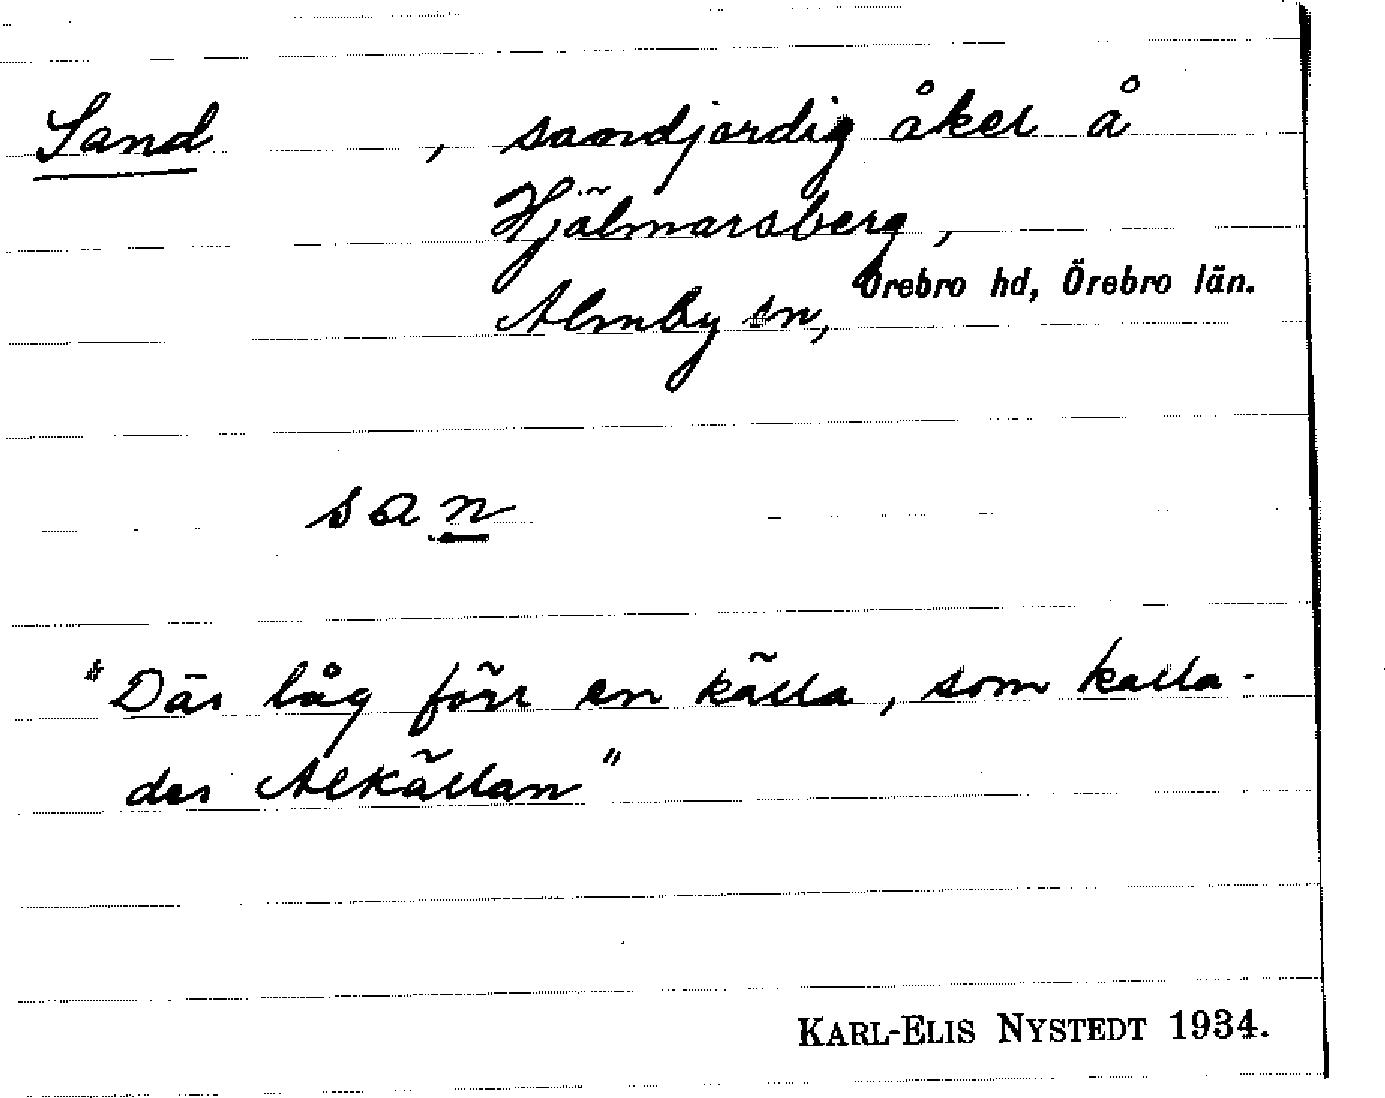 Sand , sandjordig åker å
Hjälmarsberg,
Örebro hd, Örebro län.
Almby sn,
san
"Där låg förr en källa, som kalla-
des Alkällan"
KARL-ELIS NYSTEDT 1934.